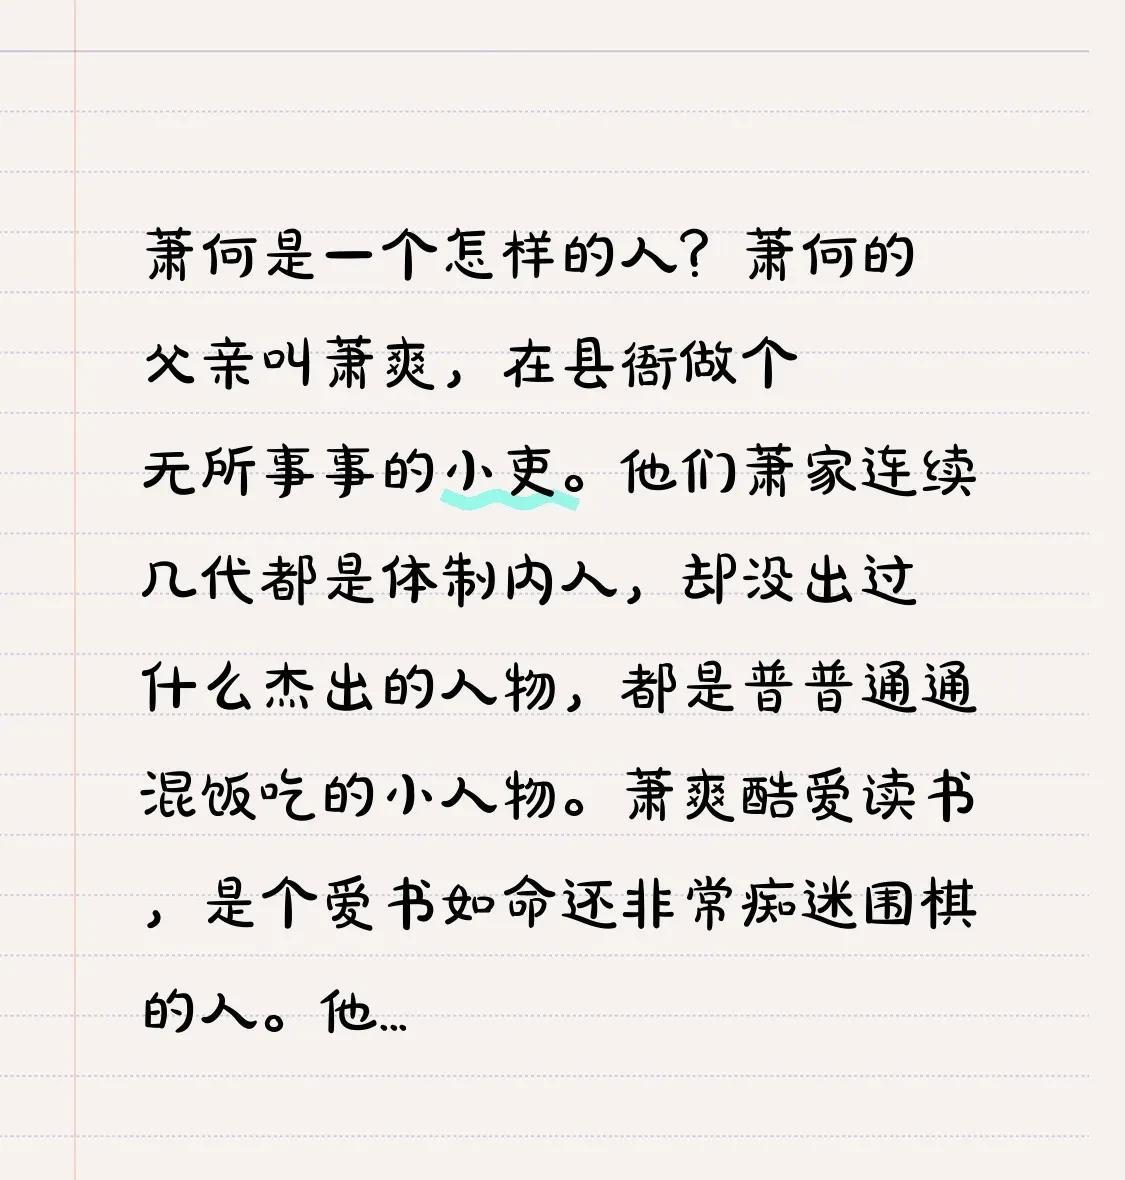 萧何是一个怎样的人？萧何的
父亲叫萧爽，在县衙做个
无所事事的小吏。他们萧家连续
几代都是体制内人，却没出过
什么杰出的人物，都是普普通通
混饭吃的小人物。萧爽酷爱读书
，是个爱书如命还非常痴迷围棋
的人。他...